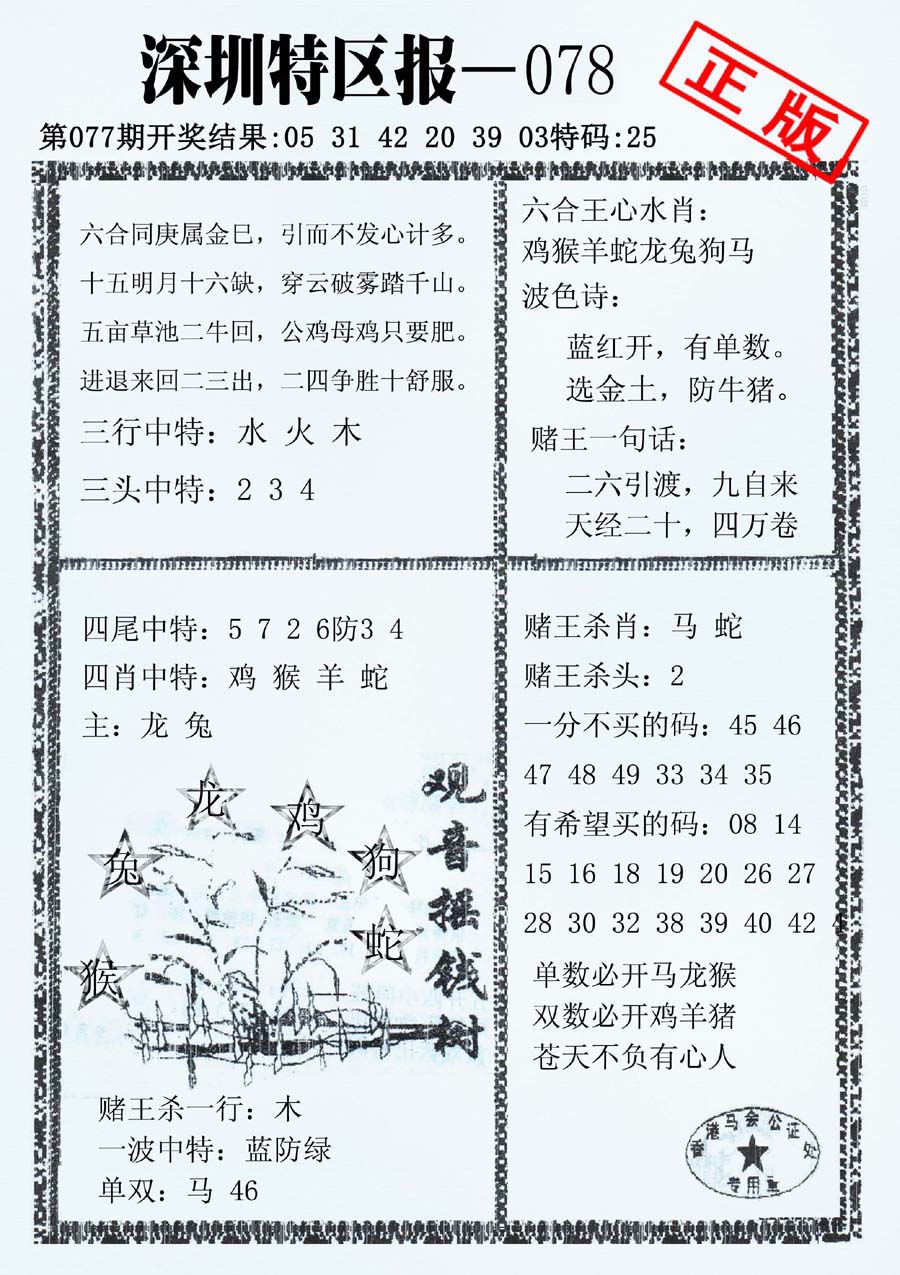 深圳特区报—078
正版
第077期开奖结果:05 31 42 20 39 03特码:25
六合同庚属金巳，引而不发心计多。
十五明月十六缺，穿云破雾踏千山。
五亩草池二牛回，公鸡母鸡只要肥。
进退来回二三出，二四争胜十舒服。
三行中特：水 火 木
三头中特：2 3 4
六合王心水肖：
鸡猴羊蛇龙兔狗马
波色诗：
蓝红开，有单数。
选金土，防牛猪。
赌王一句话：
二六引渡，九自来
天经二十，四万卷
四尾中特：5 7 2 6防3 4
四肖中特：鸡 猴 羊 蛇
主：龙 兔
龙
鸡
兔
狗
蛇
猴
观音摇钱树
赌王杀一行：木
一波中特：蓝防绿
单双：马 46
赌王杀肖：马 蛇
赌王杀头：2
一分不买的码：45 46
47 48 49 33 34 35
有希望买的码：08 14
15 16 18 19 20 26 27
28 30 32 38 39 40 42 4
单数必开马龙猴
双数必开鸡羊猪
苍天不负有心人
香港马会公证处
专用章